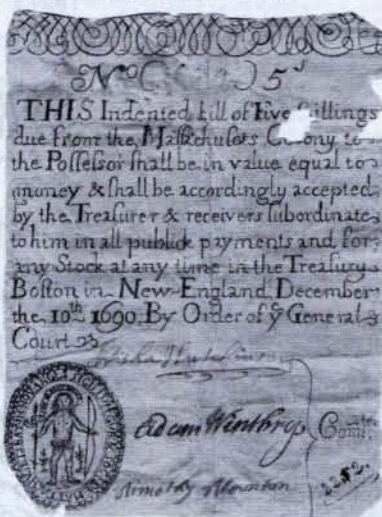 No 5s
THIS Indented Bill of Five Shillings
due from the Massachusets Colony to
the Possessor shall be in value equal to
money & shall be accordingly accepted
by the Treasurer & receivers subordinate
to him in all publick payments and for
any Stock at any time in the Treasury
Boston in New-England December
the 10th 1690. By Order of ye General
Court
Adam Winthrop
Comtee
Timothy Thornton